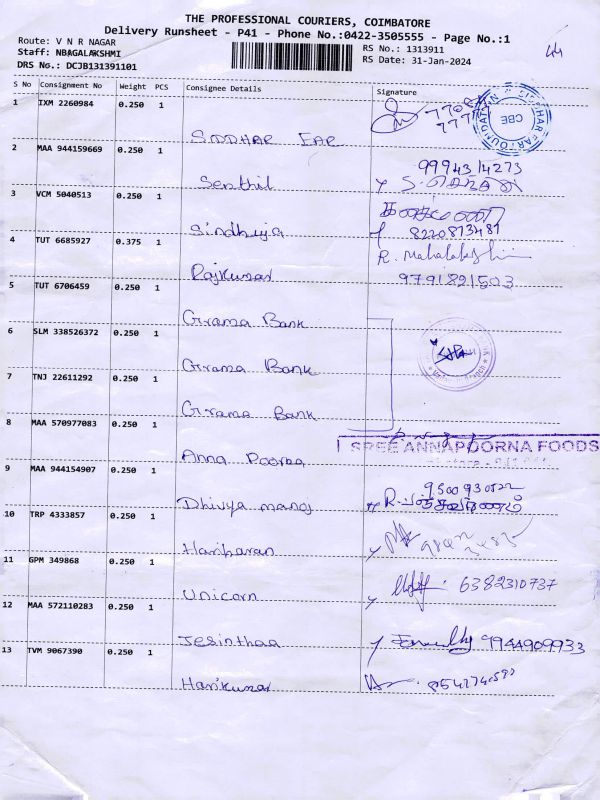 THE PROFESSIONAL COURIERS, COIMBATORE
Delivery Runsheet - P41 - Phone No.:0422-3505555 - Page No.:1
Route: V N R NAGAR
Staff: NBAGALAKSHMI
DRS No.: DCJB131391101
RS No.: 1313911
RS Date: 31-Jan-2024
44
S No Consignment No Weight PCS Consignee Details Signature
1 IXM 2260984 0.250 1
SIDDHAR EAR
CBE
2 MAA 944159669 0.250 1
Senthil
99943 14273
3 VCM 5040513 0.250 1
Sindhuja
8220873481
4 TUT 6685927 0.375 1
Rajkumar
R. Mahalakshmi
9791821503
5 TUT 6706459 0.250 1
Grama Bank
6 SLM 338526372 0.250 1
Grama Bank
7 TNJ 22611292 0.250 1
Grama Bank
8 MAA 570977083 0.250 1
Anna Poorna
SREE ANNAPOORNA FOODS
9 MAA 944154907 0.250 1
Dhivya manoj
9500930522
10 TRP 4333857 0.250 1
Hariharan
11 GPM 349868 0.250 1
Unicorn
6382310737
12 MAA 572110283 0.250 1
Jesinthaa
9944909933
13 TVM 9067390 0.250 1
Harikumar